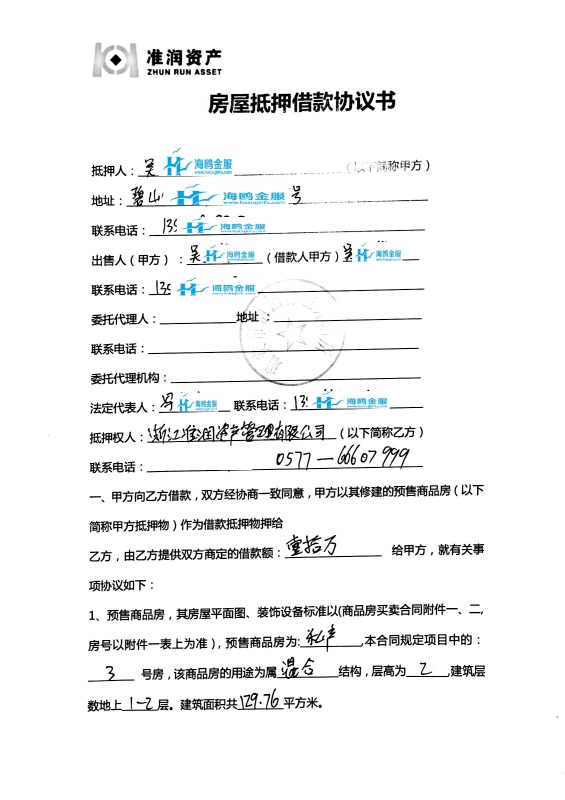 准润资产
ZHUN RUN ASSET
房屋抵押借款协议书
抵押人：吴 海鸥金服 （以下简称甲方）
地址：碧山 海鸥金服 号
联系电话：135 海鸥金服
出售人（甲方）：吴 海鸥金服 （借款人甲方）吴 海鸥金服
联系电话：135 海鸥金服
委托代理人： 地址：
联系电话：
委托代理机构：
法定代表人： 海鸥金服 联系电话：13 海鸥金服
抵押权人：浙江准润资产管理有限公司（以下简称乙方）
联系电话： 0577—66607999
一、甲方向乙方借款，双方经协商一致同意，甲方以其修建的预售商品房（以下
简称甲方抵押物）作为借款抵押物押给
乙方，由乙方提供双方商定的借款额：壹拾万 给甲方，就有关事
项协议如下：
1、预售商品房，其房屋平面图、装饰设备标准以(商品房买卖合同附件一、二,
房号以附件一表上为准），预售商品房为:私产,本合同规定项目中的：
3 号房，该商品房的用途为属混合 结构，层高为 2 ,建筑层
数地上 1-2 层。建筑面积共129.76平方米。